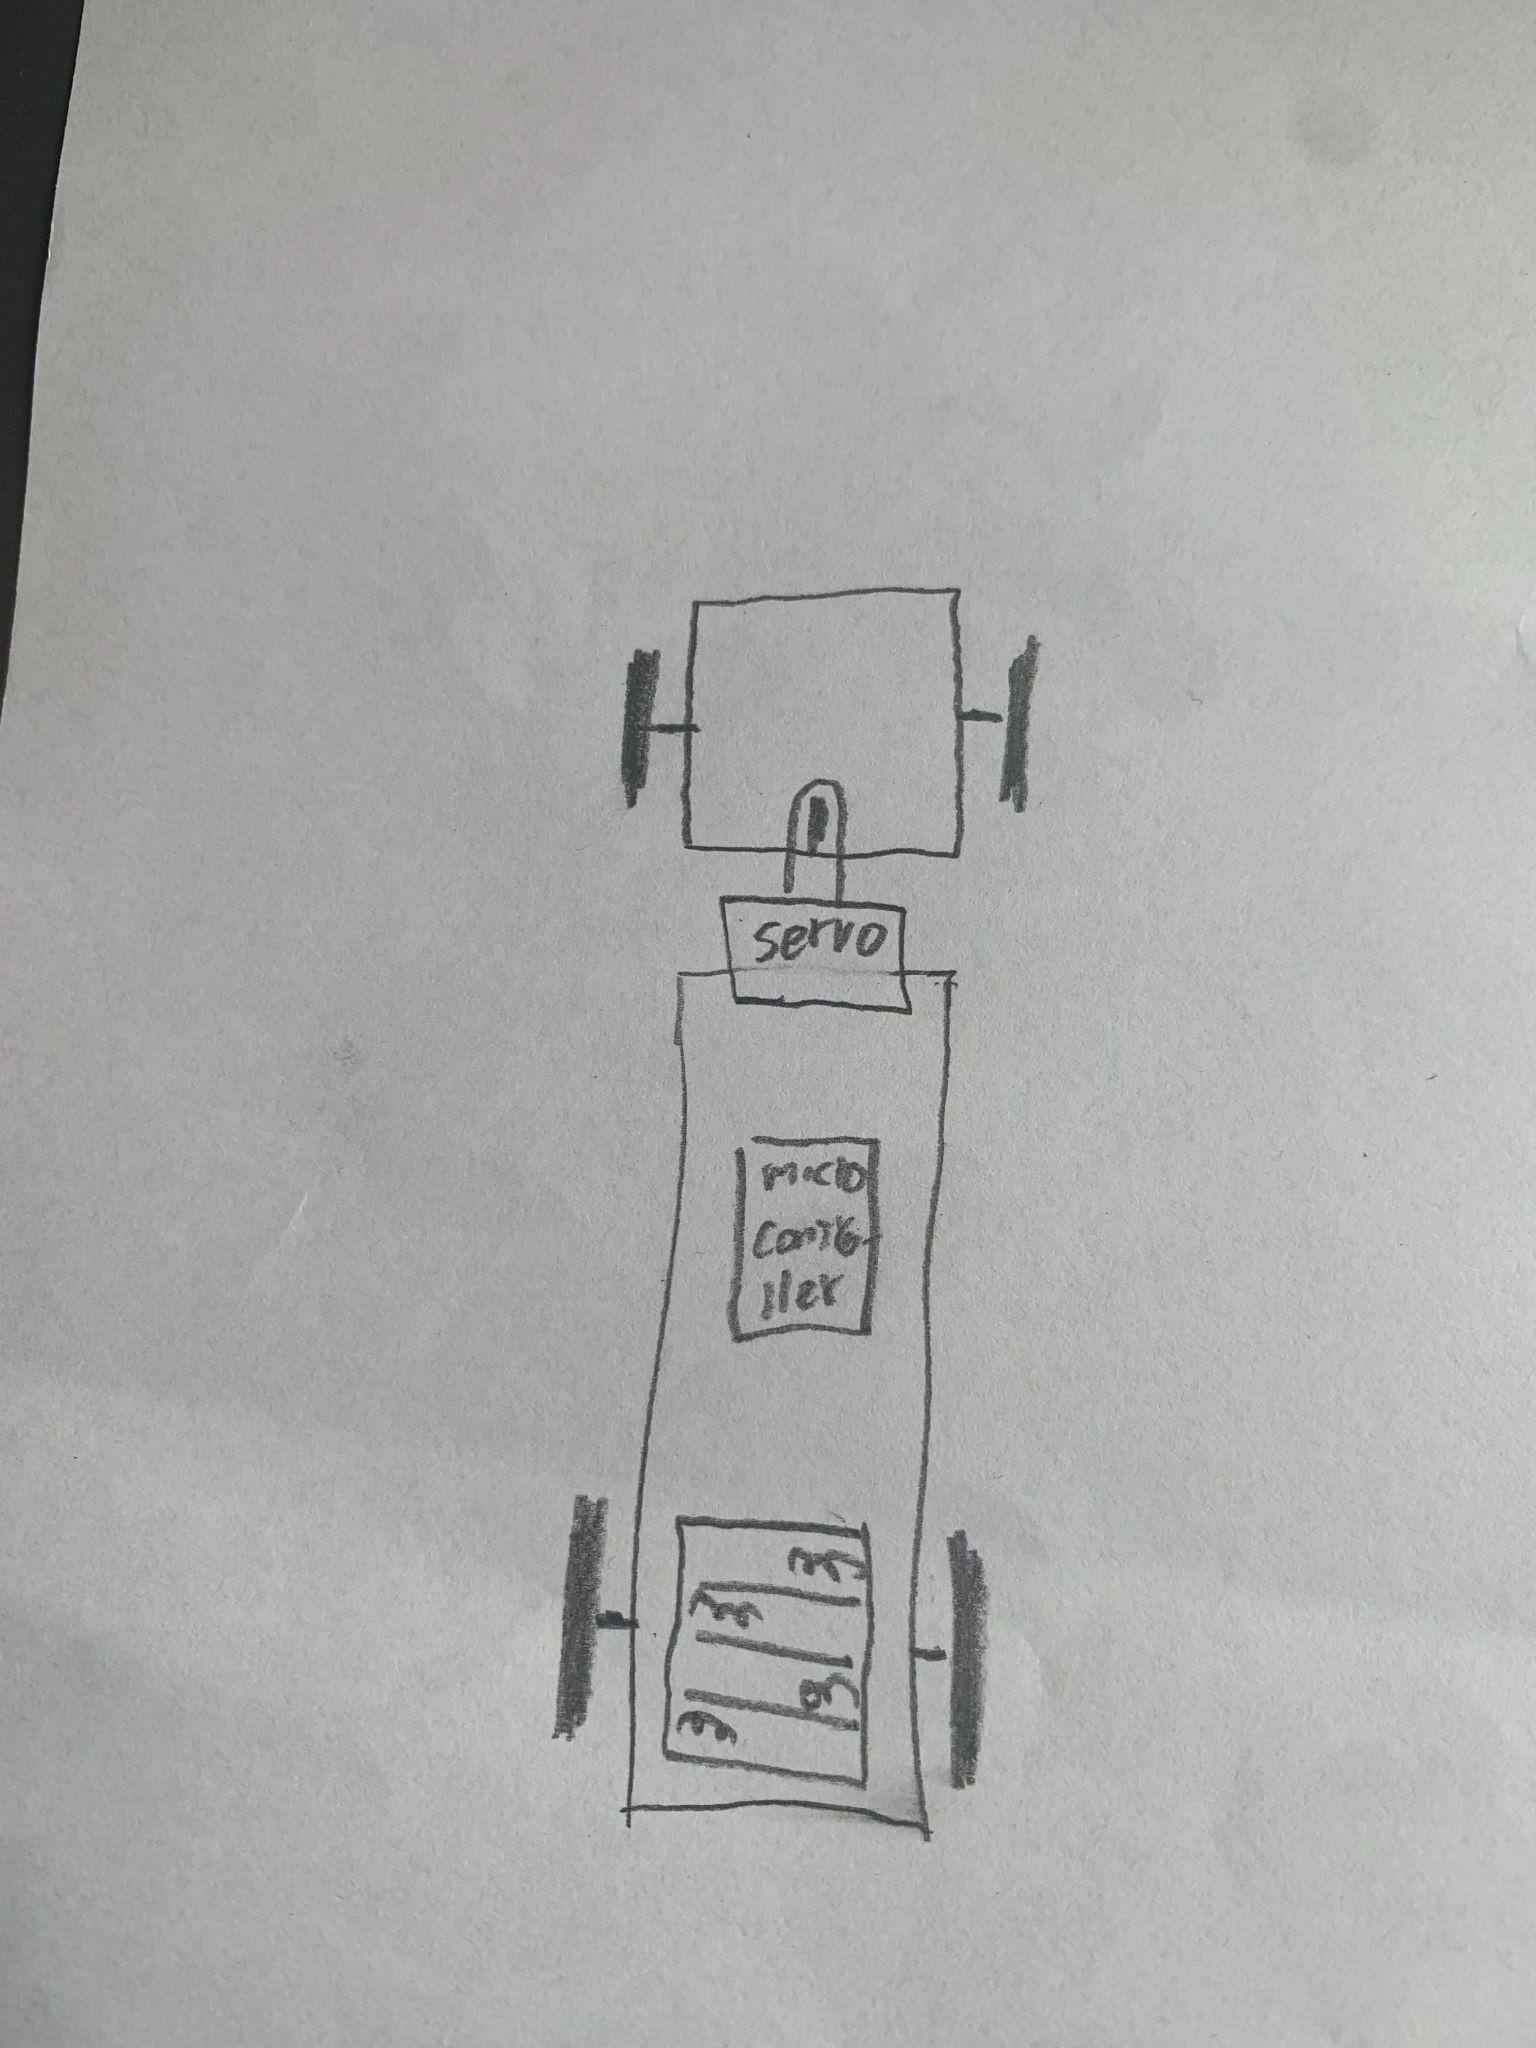 servo
micro
contro
ller